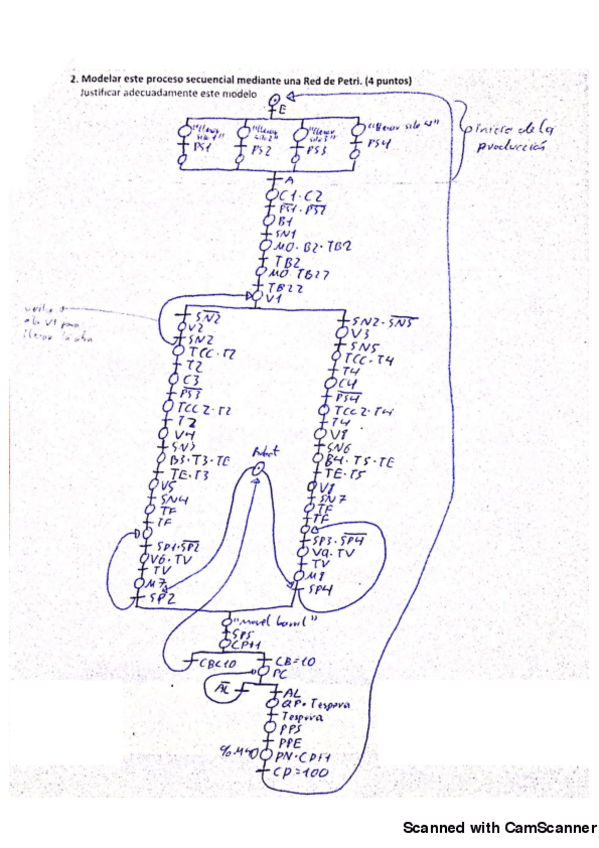 2. Modelar este proceso secuencial mediante una Red de Petri. (4 puntos)
Justificar adecuadamente este modelo
E
"llenar silo 1"
"llenar silo 2"
"llenar silo 3"
"llenar silo 4"
inicio de la
producción
PS1
PS2
PS3
PS4
A
C1·C2
P̅S̅1̅·P̅S̅2̅
B1
SN1
MO·B2·TB2
TB2
MO·TB22
TB22
V1
S̅N̅2̅
SN2·S̅N̅5̅
V2
V3
SN2
SN5
TCC·T2
TCC·T4
T2
T4
C3
C4
P̅S̅3̅
P̅S̅4̅
TCC2·T2
TCC2·T4
T2
T4
V4
V8
SN3
SN6
Robot
B3·T3·TE
B4·T5·TE
TE·T3
TE·T5
V5
V8
SN4
SN7
TF
TF
TF
TF
SP1·S̅P̅2̅
SP3·S̅P̅4̅
V6·TV
V9·TV
TV
TV
M7
M8
SP2
SP4
"movel barril"
SP5
CP+1
CB<10
CB=10
PC
A̅L̅
AL
QP·Tespera
Tespera
PPS
PPE
PN·CP+1
CP=100
Scanned with CamScanner